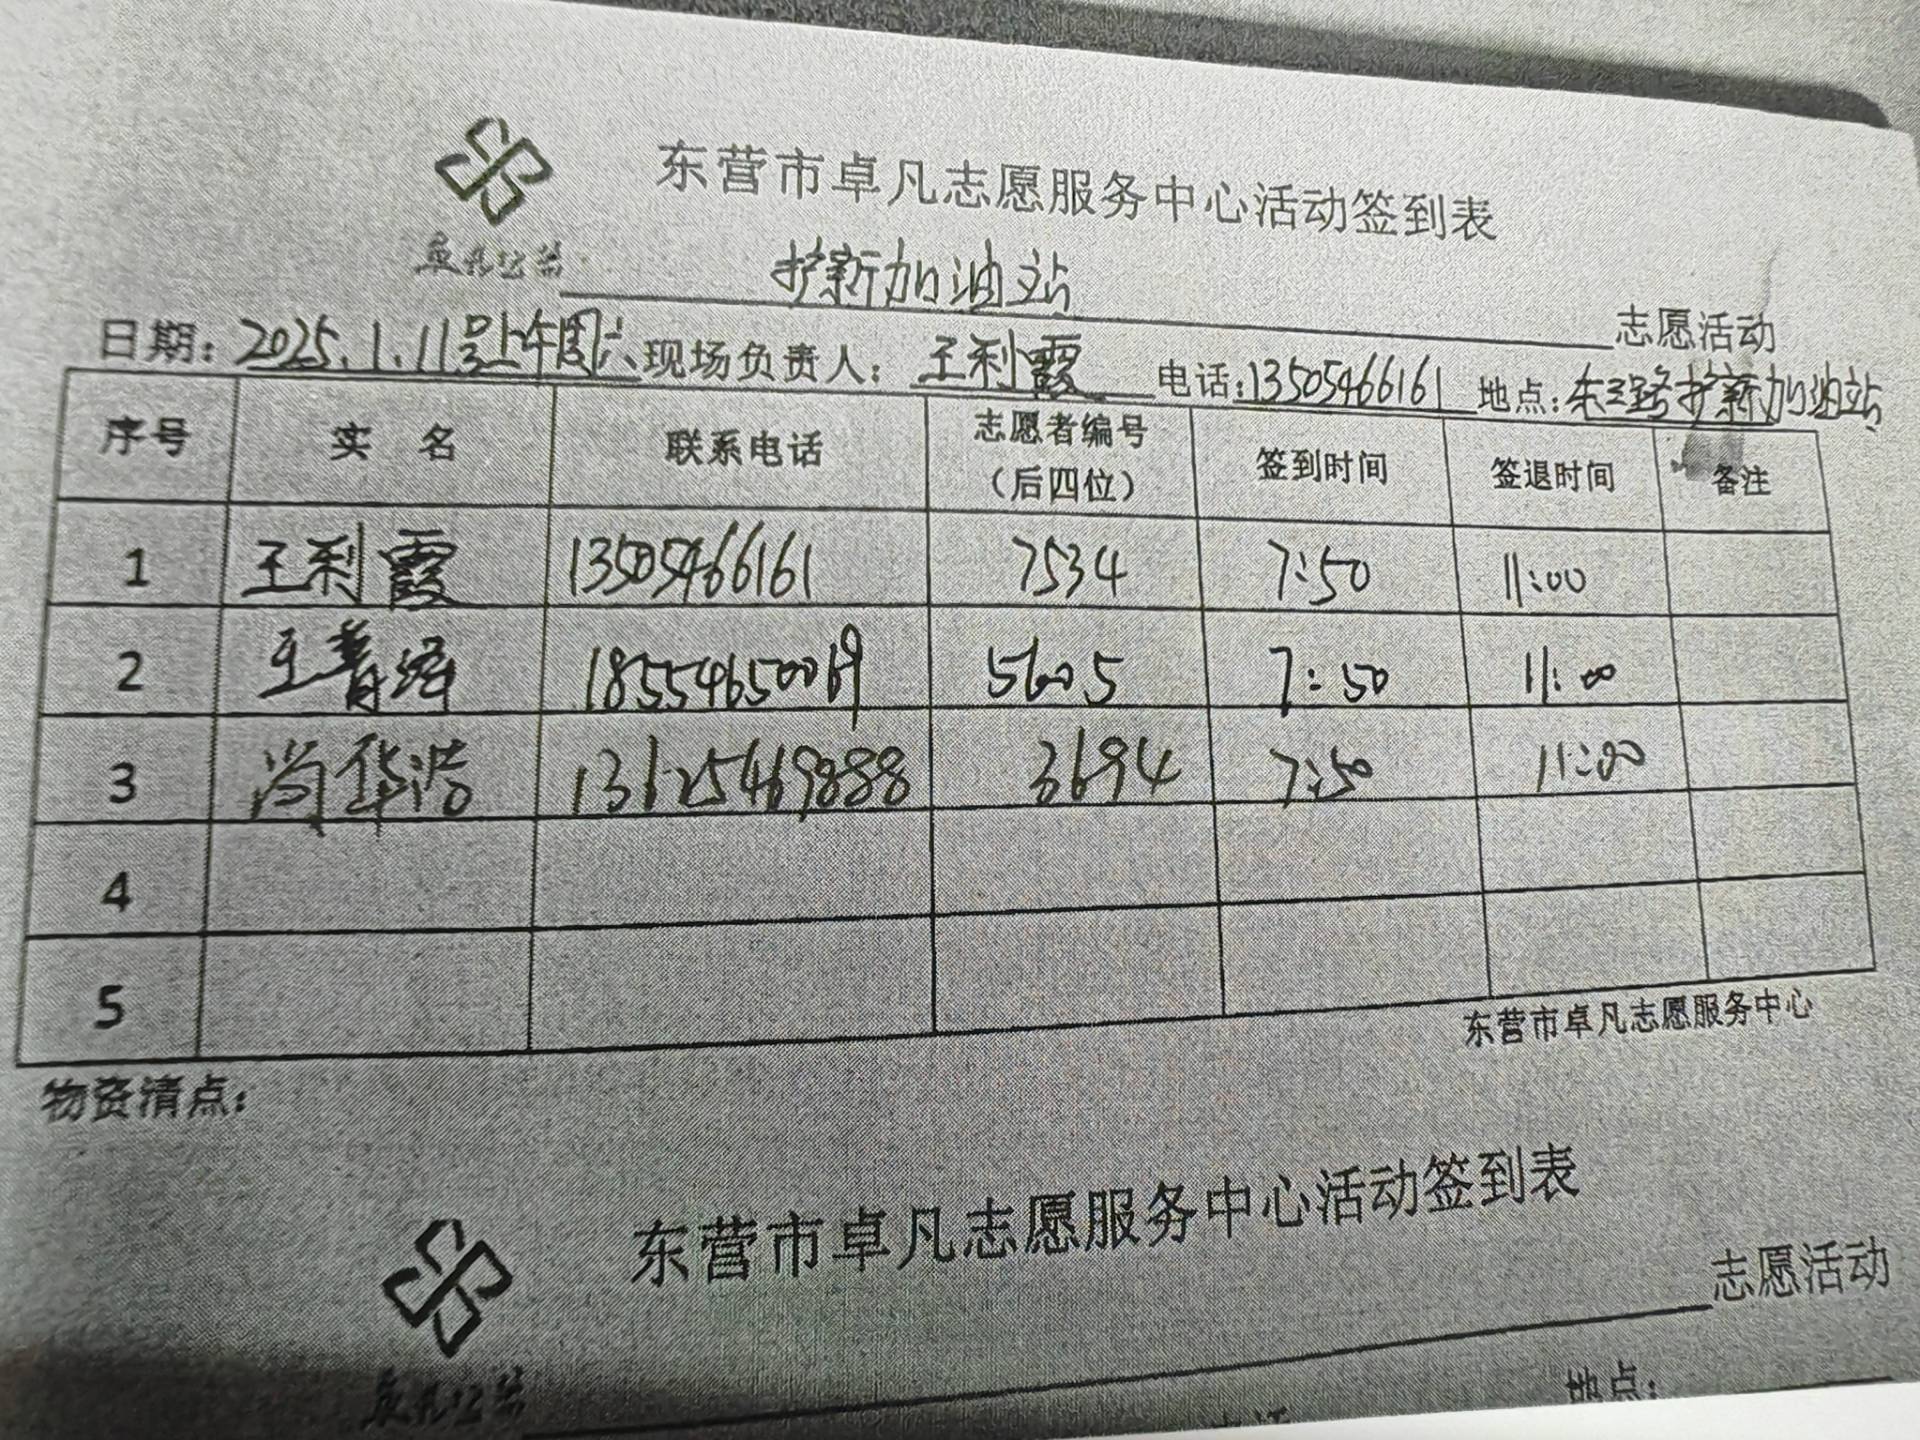 东营市卓凡志愿服务中心活动签到表
卓凡公益
护新加油站 志愿活动
日期：2025.1.11号上午周六 现场负责人：王利霞 电话：13505466161 地点：东三路护新加油站
序号 实 名 联系电话 志愿者编号（后四位） 签到时间 签退时间 备注
1 王利霞 13505466161 7534 7:50 11:00
2 王 185546500 5605 7:50 11:00
3 尚华浩 13625469888 3694 7:50 11:00
4
5
东营市卓凡志愿服务中心
物资清点：
东营市卓凡志愿服务中心活动签到表
卓凡公益
志愿活动
地点：